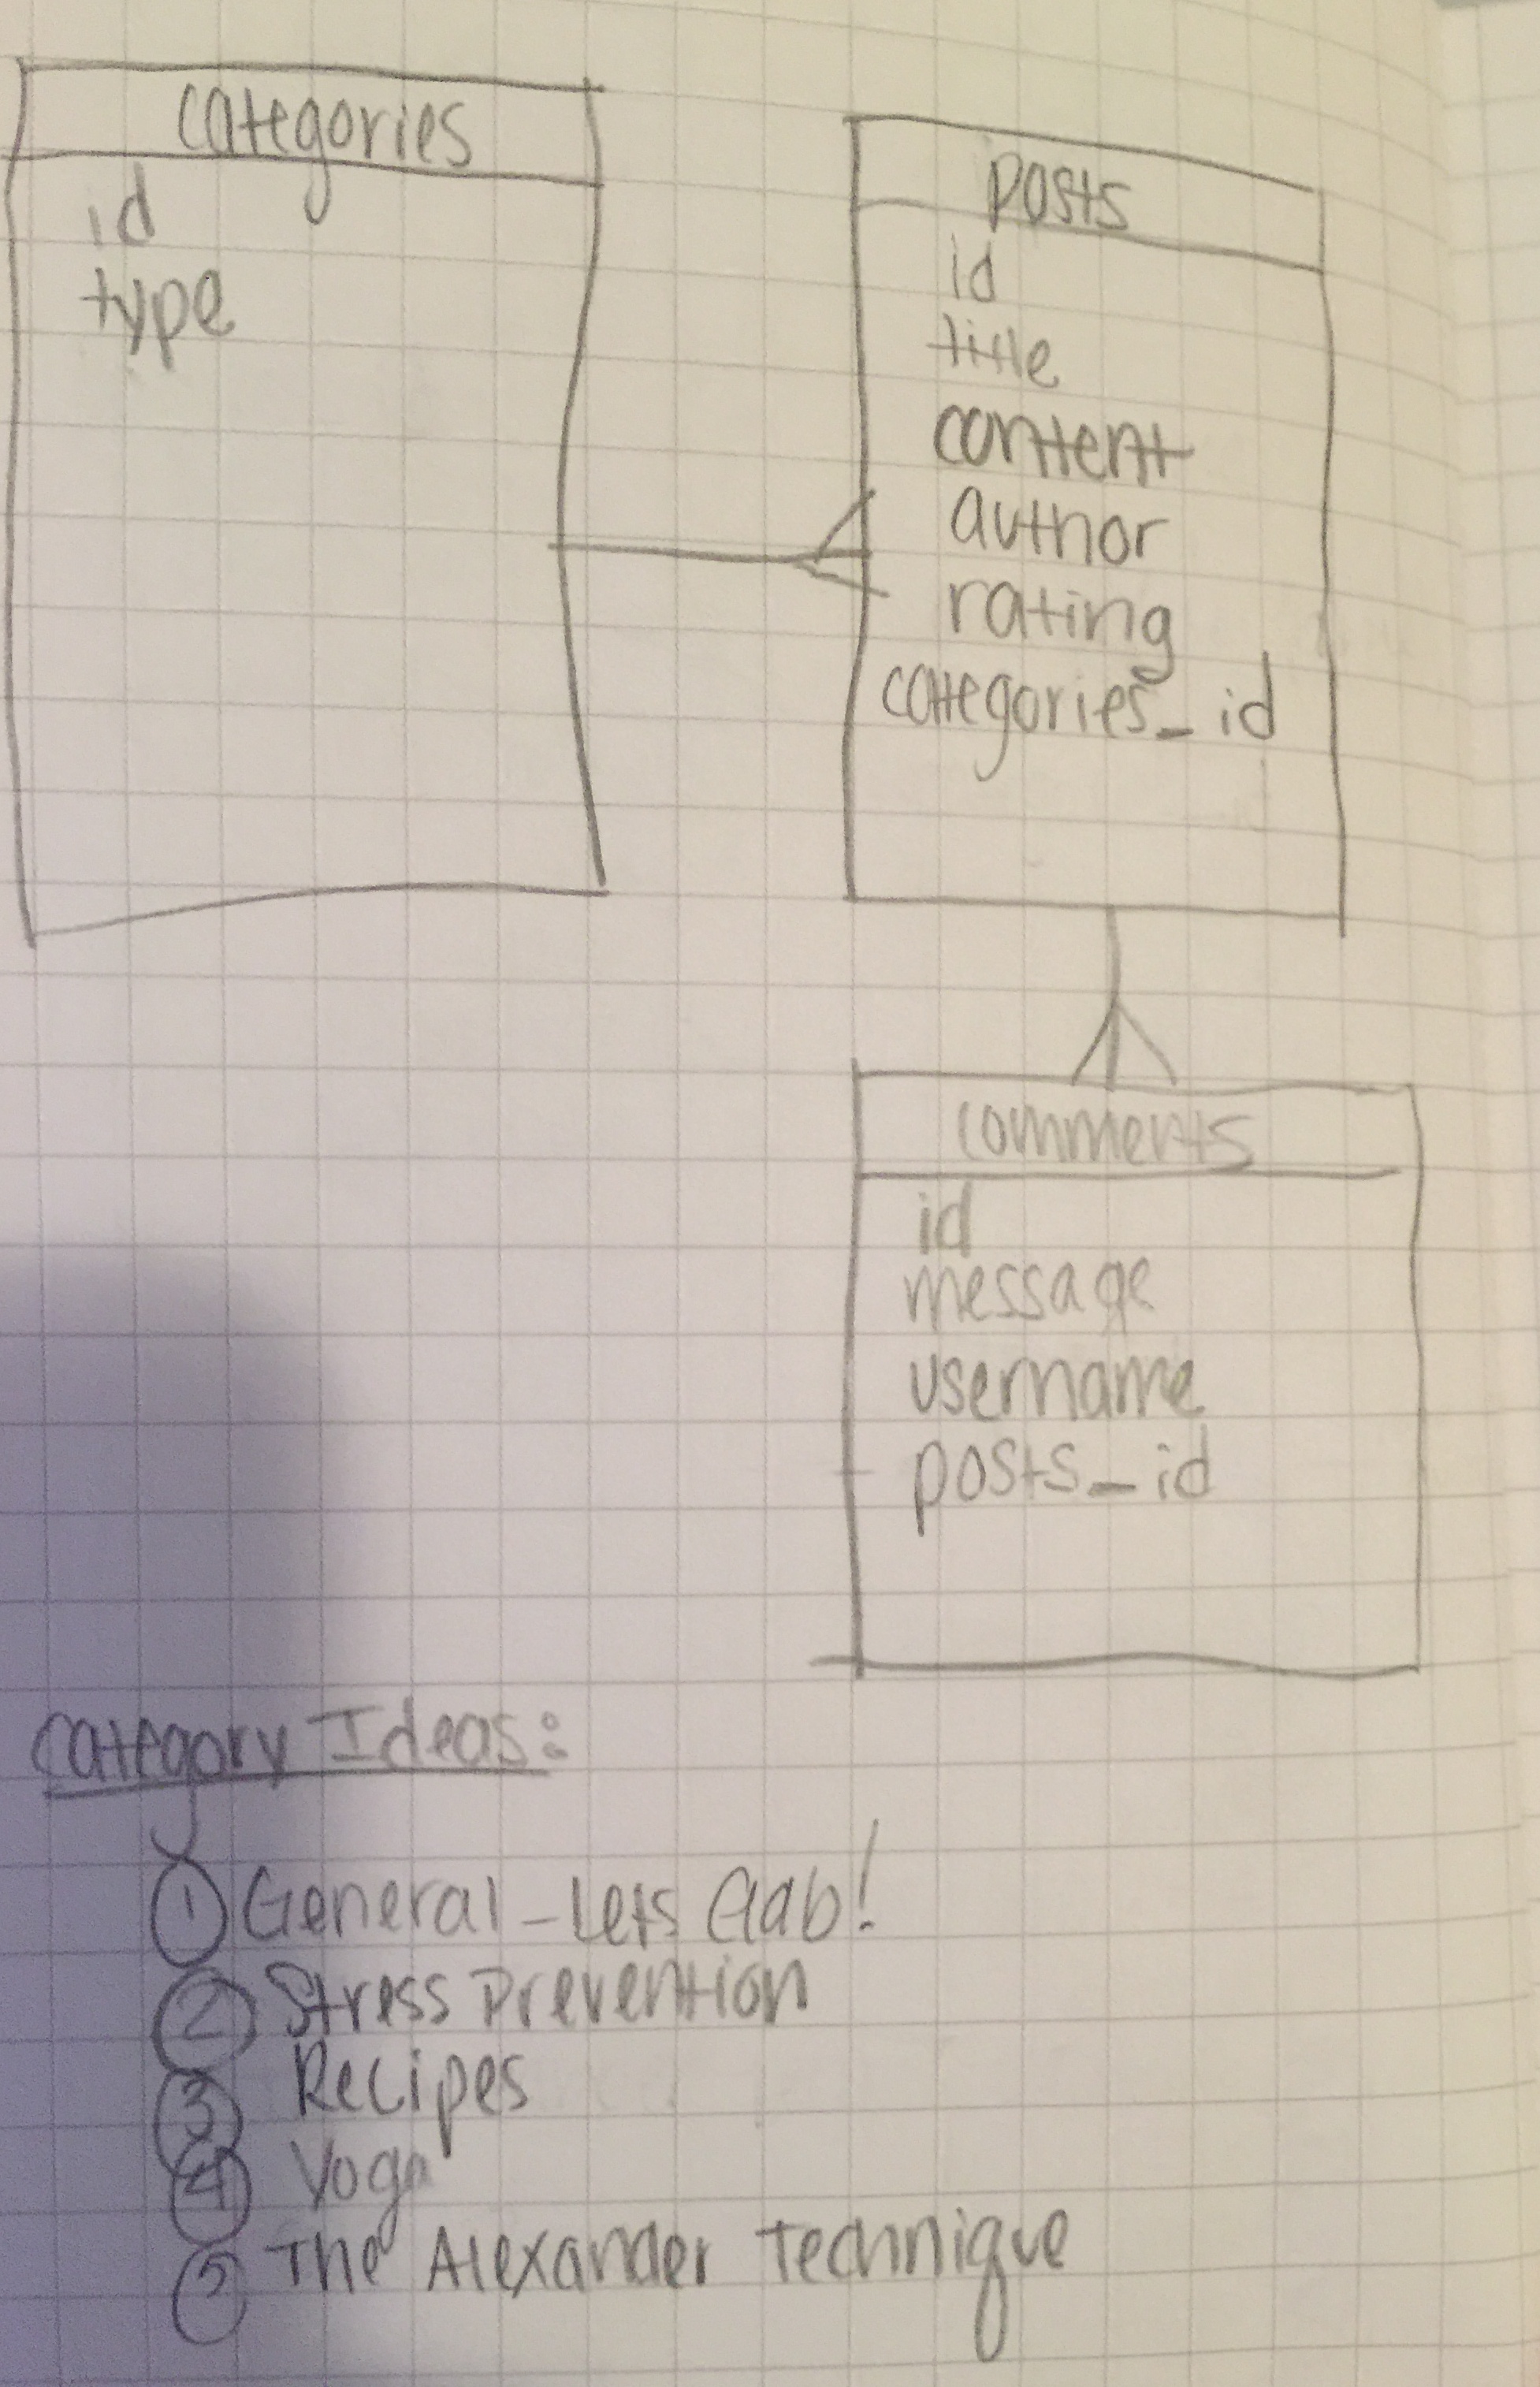 categories
id
type
posts
id
title
content
author
rating
categories_id
comments
id
message
username
posts_id
Category Ideas:
1 General - Lets Gab!
2 Stress Prevention
3 Recipes
4 Yoga
5 The Alexander Technique